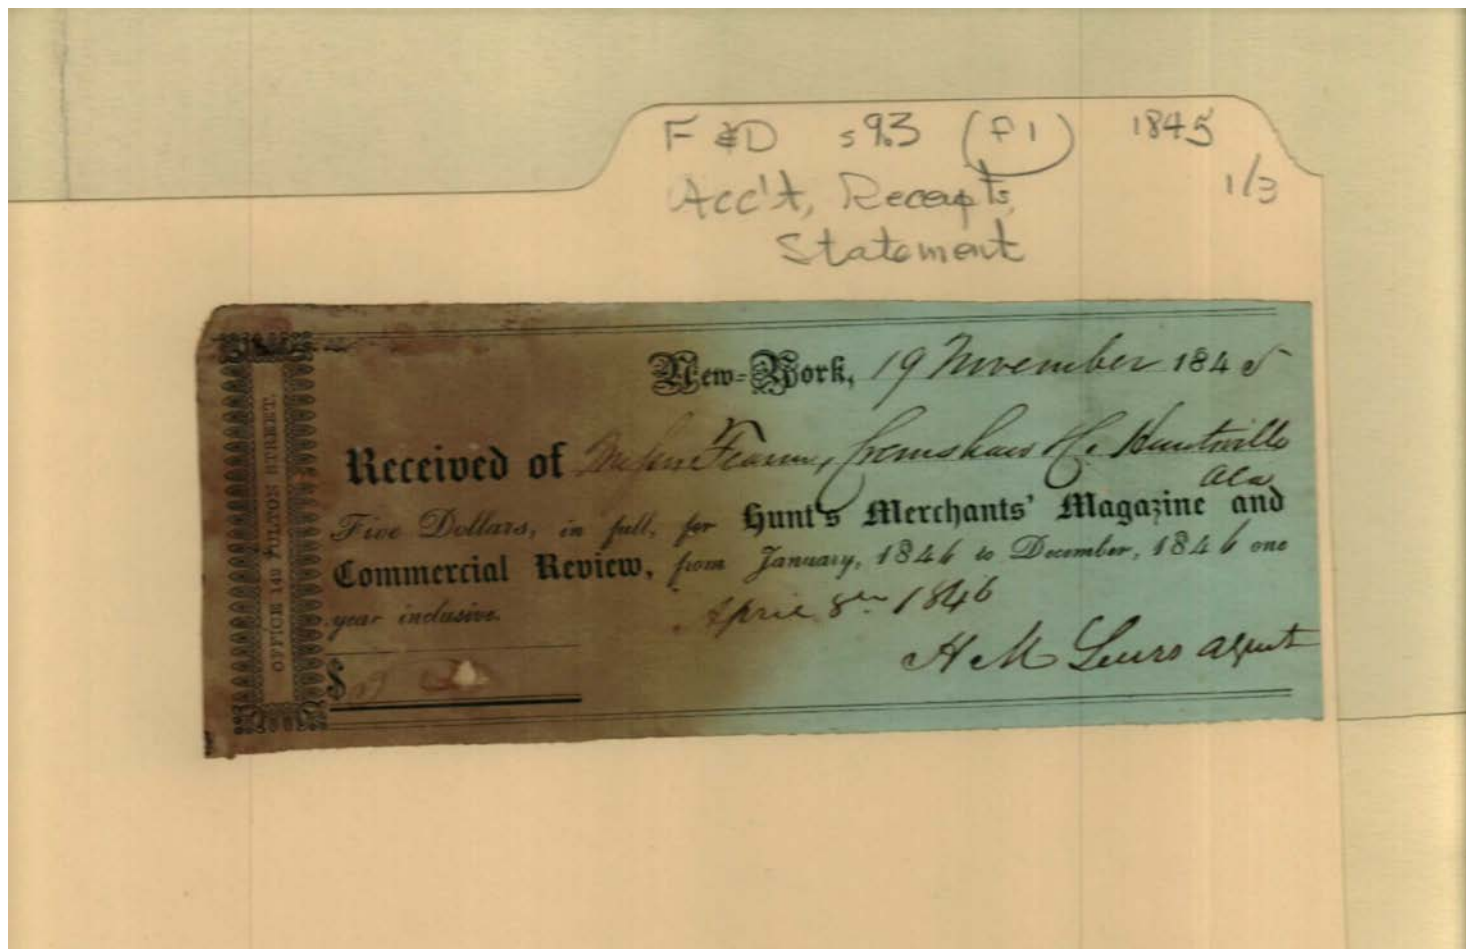 F & D s 9.3 (f 1) 1845
1/3
Acc't, Receipts,
Statement
OFFICE 142 FULTON STREET.
New-York, 19 November 1845
Received of Messrs Fearn, Crenshaw & Co. Huntsville
Ala
Five Dollars, in full, for Hunt's Merchants' Magazine and
Commercial Review, from January, 1846 to December, 1846 one
year inclusive.
April 8th 1846
H M Lewis agent
$